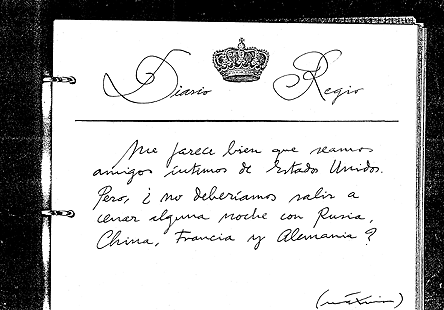 Diario Regio
Me parece bien que seamos
amigos íntimos de Estados Unidos.
Pero, ¿no deberíamos salir a
cenar alguna noche con Rusia,
China, Francia y Alemania?
(máxim)